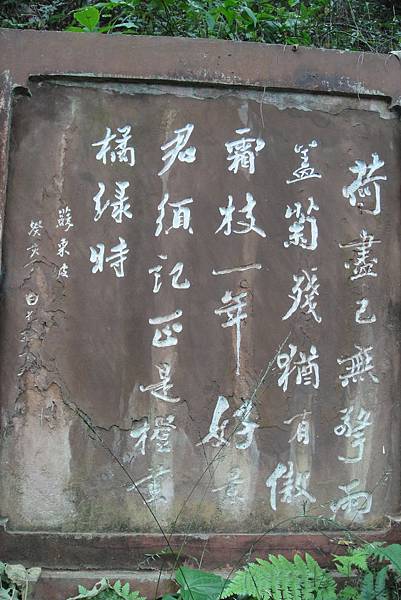 荷盡已無擎雨
盖菊殘猶有傲
霜枝一年好景
君須記正是橙黄
橘緑時
蘇東坡
癸亥